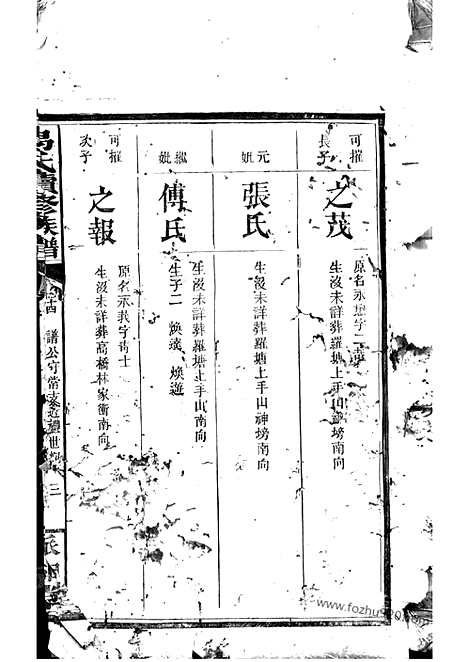 可擢
長子
之茂
原名永
生沒未詳葬羅塘上手山神塝南向
元
妣
張氏
生沒未詳葬羅塘上手山神塝南向
繼
妣
傅氏
生沒未詳葬羅塘上手山南向
生子二 煥遊
可擢
次子
之報
原名永義字
生沒未詳葬高橋林家衝南向
氏續修族譜
譜公守常支
www.fozhu920.com